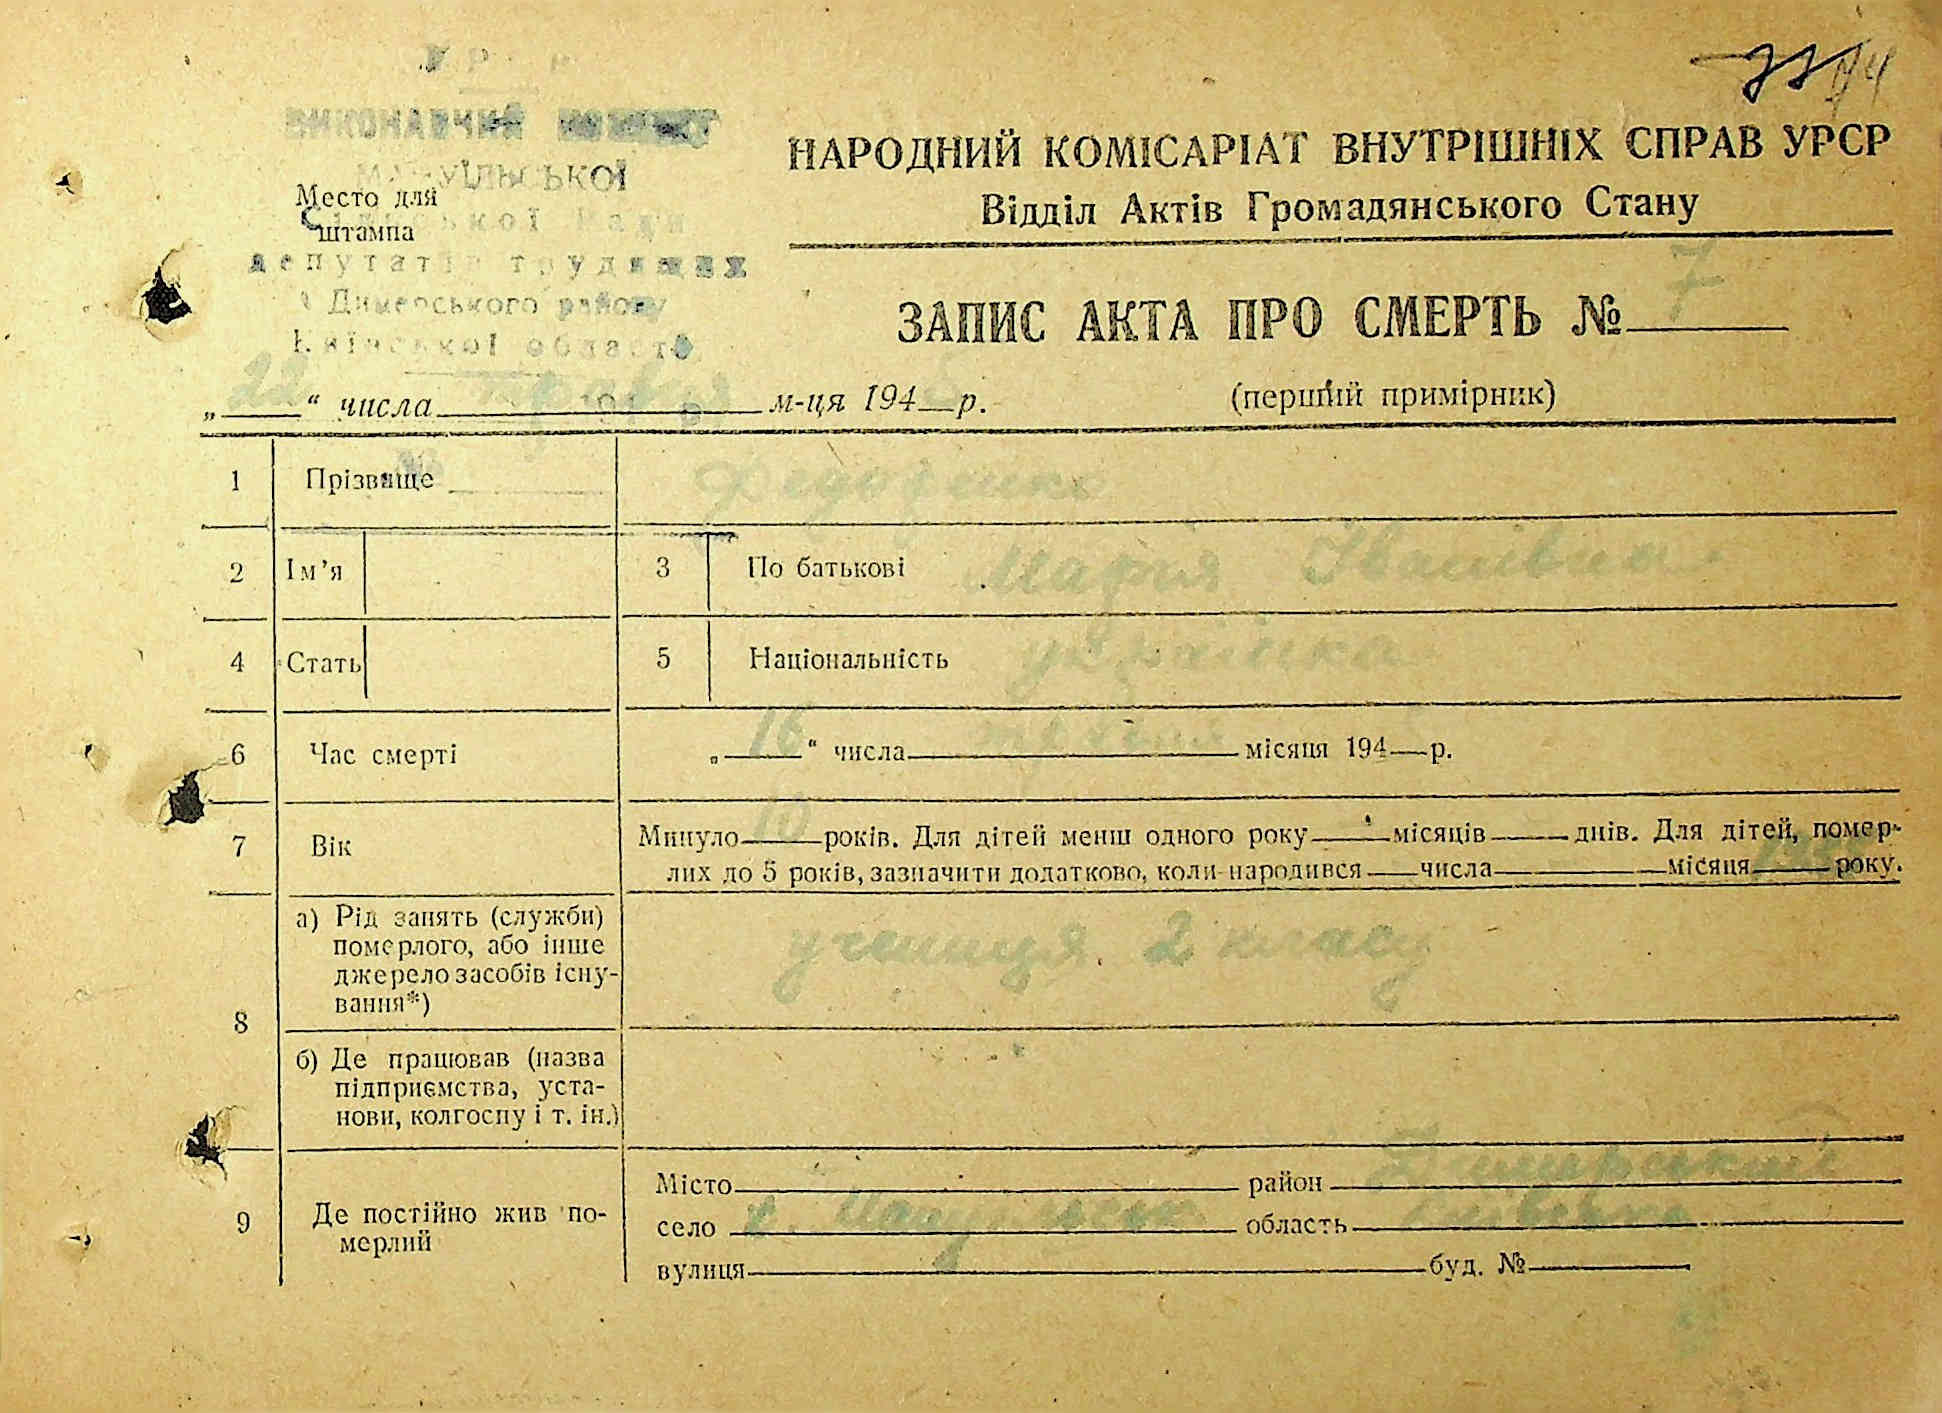 ВИКОНАВЧИЙ
МАНУЇЛЬСЬКОЇ
Место для
штампа
Сільської Ради
депутатів трудящих
Димерського району
Київської області
НАРОДНИЙ КОМІСАРІАТ ВНУТРІШНІХ СПРАВ УРСР
Відділ Актів Громадянського Стану
ЗАПИС АКТА ПРО СМЕРТЬ № 7
„ 22 “ числа травня м-ця 194 р.
(перший примірник)
1 Прізвище Федоренко
2 Ім’я 3 По батькові Марія Іванівна
4 Стать 5 Національність українка
6 Час смерті „ 16 “ числа травня місяця 194 р.
7 Вік Минуло 10 років. Для дітей менш одного року місяців днів. Для дітей, помер-
лих до 5 років, зазначити додатково, коли народився числа місяця року.
8 а) Рід занять (служби)
померлого, або інше
джерело засобів існу-
вання*)
учениця 2 класу
б) Де працював (назва
підприємства, уста-
нови, колгоспу і т. ін.)
9 Де постійно жив по-
мерлий
Місто район Димерський
село область Київська
вулиця буд. №